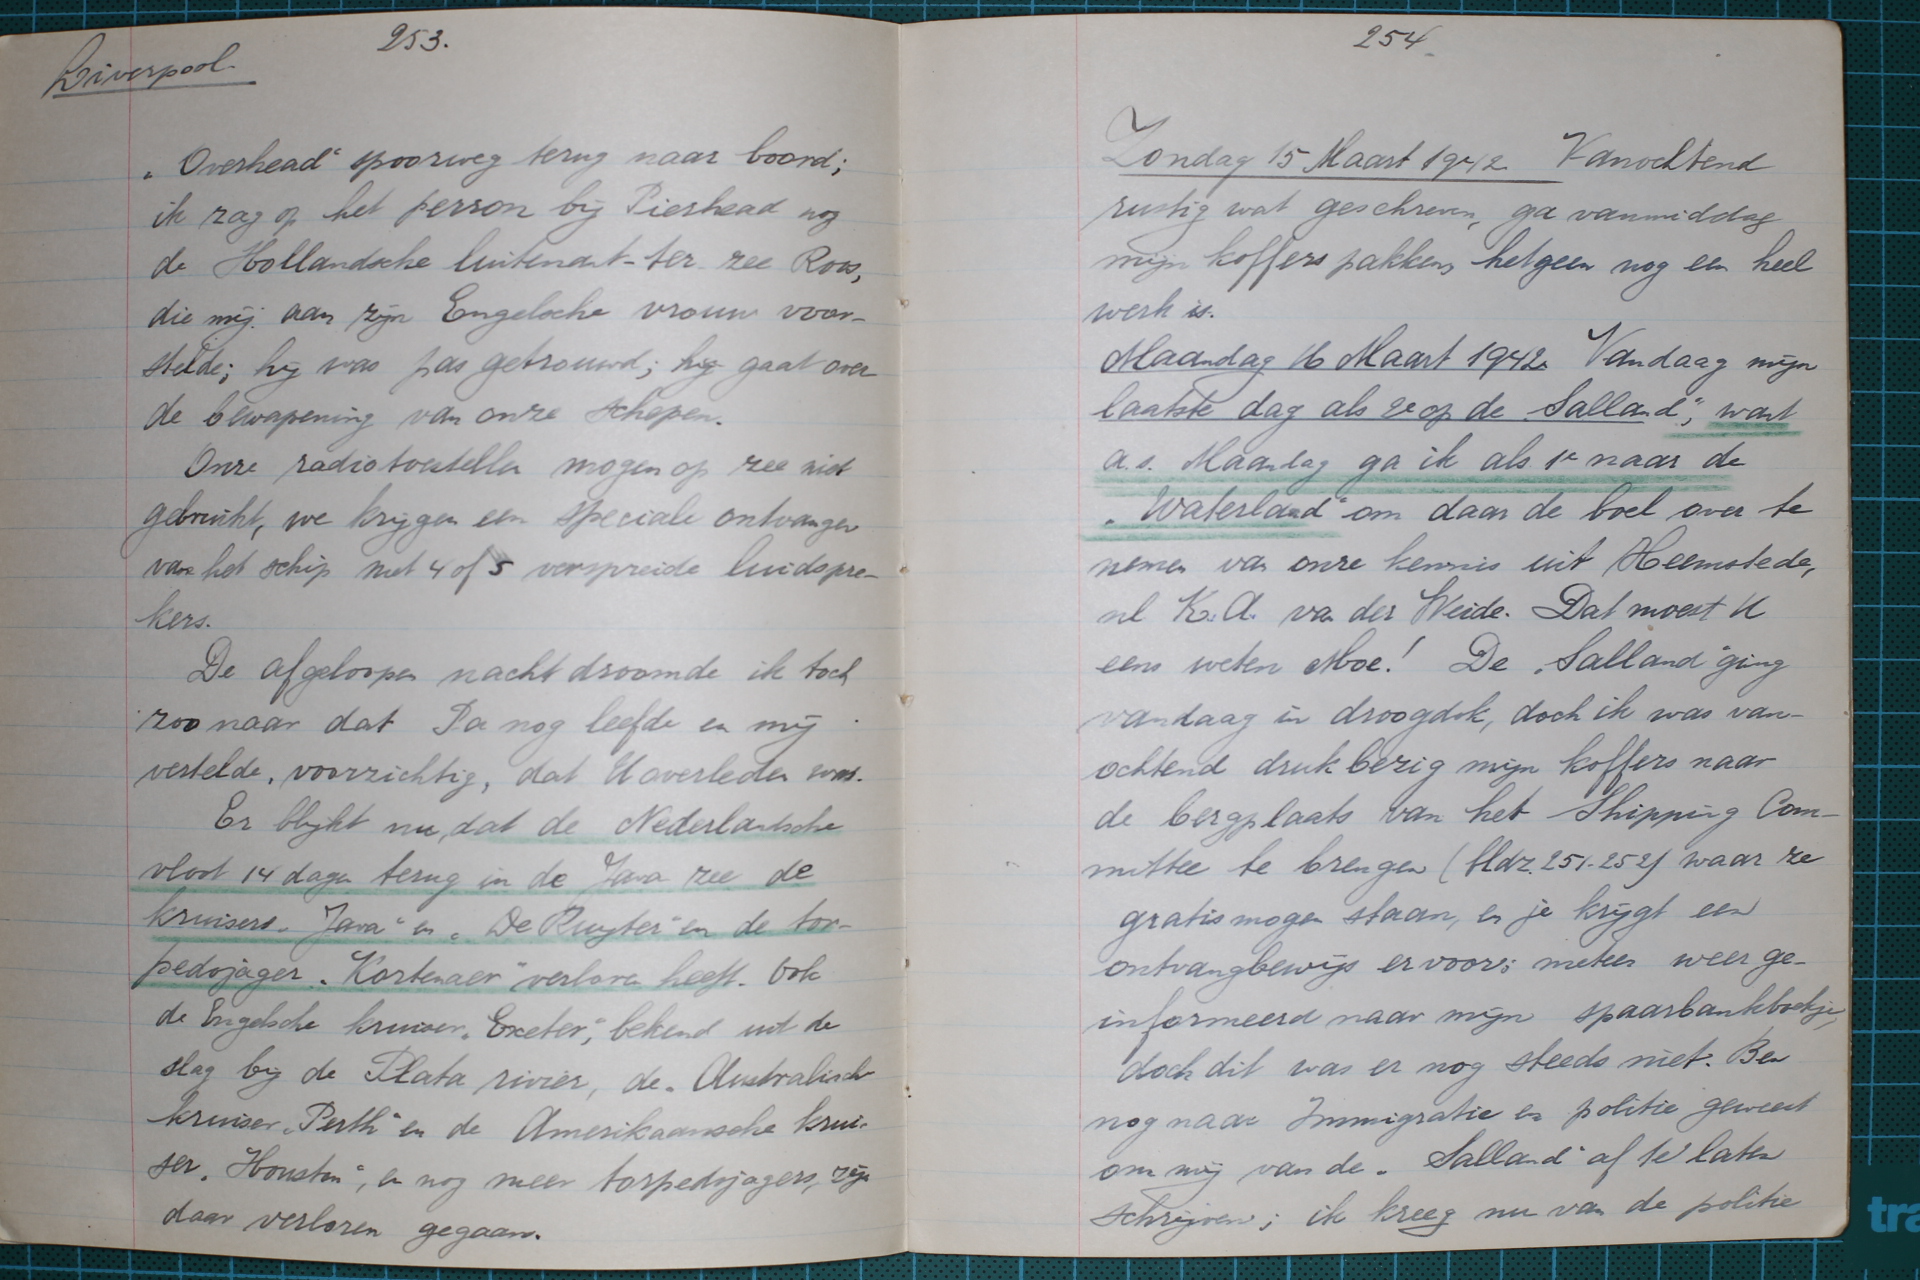 253.
Liverpool.
„Overhead" spoorweg terug naar boord;
ik zag op het perron bij Pierhead nog
de Hollandsche luitenant-ter-zee Roos,
die mij aan zijn Engelsche vrouw voor-
stelde; hij was pas getrouwd; hij gaat over
de bewapening van onze schepen.
Onze radiotoestellen mogen op zee niet
gebruikt, we krijgen een speciale ontvanger
van het schip met 4 of 5 verspreide luidspre-
kers.
De afgeloopen nacht droomde ik toch
zoo naar dat Pa nog leefde en mij
vertelde, voorzichtig, dat U overleden was.
Er blijkt nu, dat de Nederlandsche
vloot 14 dagen terug in de Java zee de
kruisers „Java" en „De Ruyter" en de tor-
pedojager „Kortenaer" verloren heeft. Ook
de Engelsche kruiser „Exeter", bekend uit de
slag bij de Plata rivier, de „Australische
kruiser „Perth" en de Amerikaansche krui-
ser „Houston", en nog meer torpedojagers, zijn
daar verloren gegaan.
254.
Zondag 15 Maart 1942. Vanochtend
rustig wat geschreven, ga vanmiddag
mijn koffers pakken, hetgeen nog een heel
werk is.
Maandag 16 Maart 1942. Vandaag mijn
laatste dag als 2e op de „Salland"; want
a.s. Maandag ga ik als 1e naar de
„Waterland" om daar de boel over te
nemen van onze kennis uit Heemstede,
nl K. A. van der Weide. Dat moest U
eens weten Moe! De „Salland" ging
vandaag in droogdok, doch ik was van-
ochtend druk bezig mijn koffers naar
de bergplaats van het Shipping Com-
mittee te brengen (bldz. 251-252) waar ze
gratis mogen staan, en je krijgt een
ontvangbewijs ervoor; meteen weer ge-
informeerd naar mijn spaarbankboekje,
doch dit was er nog steeds niet. Ben
nog naar Immigratie en politie geweest
om mij van de „Salland" af te laten
schrijven; ik kreeg nu van de politie